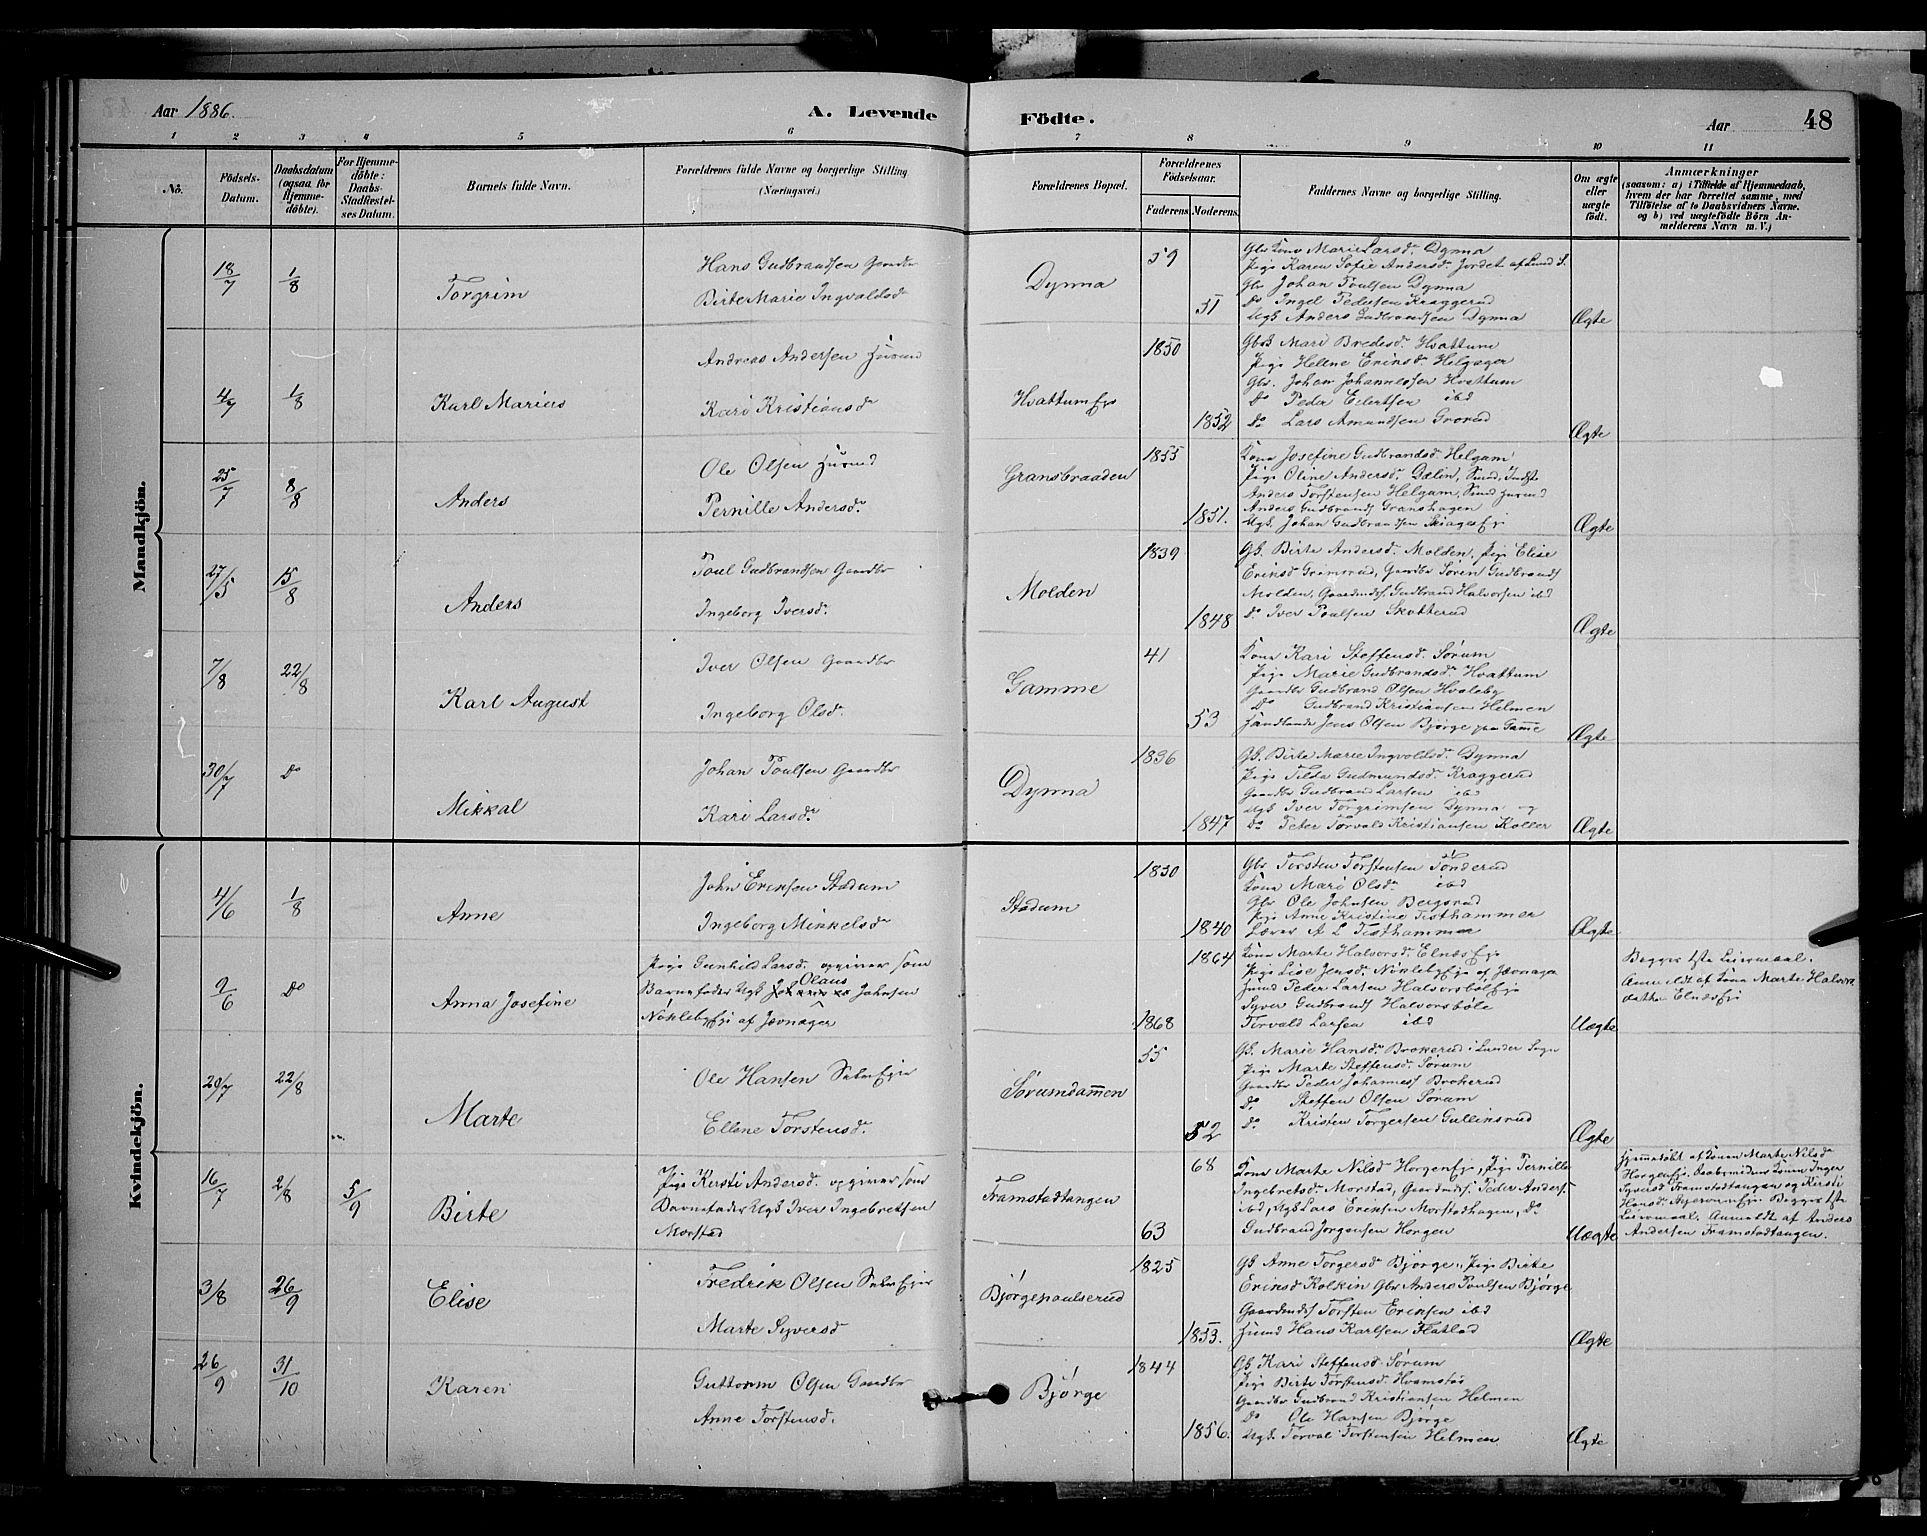 Aar 1886.
A. Levende Födte.
Aar
48
1 2 3 4 5 6 7 8 9 10 11
No.
Födsels-Datum.
Daabsdatum (ogsaa for Hjemme-döbte).
For Hjemme-döbte: Daabs-Stadfæstel-ses Datum.
Barnets fulde Navn.
Forældrenes fulde Navne og borgerlige Stilling (Næringsvei).
Forældrenes Bopæl.
Forældrenes Födselsaar.
Faderens. Moderens.
Faddernes Navne og borgerlige Stilling.
Om ægte eller uægte födt.
Anmærkninger
(saasom: a) i Tilfælde af Hjemmedaab,
hvem der har forrettet samme, med
Tilföielse af to Daabsvidners Navne.
og b) ved uægtefödte Börn An-
melderens Navn m. V.)
Mandkjön.
18/7 1/8 Torgrim
Hans Gudbrandsen Gaardbr
Birte Marie Ingvaldsdr
Dynna
59
51
Gbr Kone Marie Larsdr Dynna
Pige Karen Sofie Andersdr Jordet af Lund S.
Gbr Johan Poulsen Dynna
Do Ingel Pedersen Kraggerud
Ugk Anders Gudbrandsen Dynna
Ægte
4/7 1/8 Karl Marius
Andreas Andersen Husmd
Kari Kristiansdr
Hvattumeje
1850
1852
GbK Mari Bredesdr Hvattum
Pige Helene Eriksdr Helgager
Gbr. Johan Johannessen Hvattum
Do Peder Eilertsen ibd
Do Lars Amundsen Grorud
Ægte
25/7 8/8 Anders
Ole Olsen Husmd
Pernille Andersdr
Gransbraaden
1855
1851.
Kone Josefine Gudbrandsdr Helgam
Pige Oline Andersdr Dælin, Smed, Indst
Anders Torstensen Helgam, Smed Husmd
Anders Gudbrands Granshagen
Ugk. Johan Gudbrandsen Skiagerej
Ægte
27/5 15/8 Anders
Poul Gudbrandsen Gaardbr
Ingeborg Iversdr
Molden
1839
1848
GK. Birte Andersdr Molden, Pige Elise
Eriksd Grimsrud, Gaardbr Søren Gudbrands
Molden, Gaardmds. Gudbrand Halvorsen ibd
Do Iver Poulsen Skutterud
Ægte
7/8 22/8 Karl August
Iver Olsen Gaardbr
Ingeborg Olsdr
Gamme
41
53
Kone Kari Steffensdr Sørum
Pige Marie Gudbrandsdr Hvattum
Gaardbr Gudbrand Olsen Hvaleby
Do Gudbrand Kristiansen Helmen
Handlende Jens Olsen Bjørge paa Gamme
Ægte
30/7 Do Mikkal
Johan Poulsen Gaardbr
Kari Larsdr
Dynna
1836
1847
GK. Birte Marie Ingvoldsdr Dynna
Pige Tilda Gudmundsdr Kraggerud
Gaardbr Gudbrand Larsen ibd
Ugk Iver Torgrimsen Dynna og
Do Peter Torvald Kristiansen Koller
Ægte
Kvindekjön.
4/6 1/8 Anne
John Eriksen Stadum
Ingeborg Mikkelsdr
Stadum
1830
1840
Gbr Torsten Torstensen Tønderud
Kone Mari Olsdr ibd
Gbr Ole Johnsen Bergsrud
Pige Anne Kristine Tisthammer
Lærer A L Tisthammer
Ægte
9/6 Do Anna Josefine
Pige Gunhild Larsd. opgiver som
Barnefader Ugk Olaus Johnsen
Nøklebyeje af Jevnager
1864
1868
Kone Marte Halvorsdr Elnæseje
Pige Lise Jensdr Nøklebyeje af Jævnager
Husmd Peder Larsen Halvorsbøleje
Syver Gudbrands Halvorsbøle
Torvald Larsen ibd
Uægte
Begges 1ste Leiermaal.
Anmeldt af Kone Marte Halvors
datter Elnæseje
20/7 22/8 Marte
Ole Hansen Selveier
Ellene Torstensdr
Sørumdammen
55
52
GK. Marie Hansdr Brokerud i Lunder Sogn
Pige Marte Steffensdr Sørum
Gaardbr Peder Johanness Brokerud
Do Steffen Olsen Sørum
Do Kristen Torgersen Gullinsrud
Ægte
16/7 2/8 5/9 Birte
Pige Kersti Andersd. opgiver som
Barnefader Ugk Iver Ingebretsen
Morstad
Framstadtangen
68
63
Kone Marte Nilsd Horgeneje, Pige Pernille
Ingebretsdr Morstad, Gaardmds. Peder Anders.
ibd, Ugk Lars Eriksen Morstadhagen, Do
Gudbrand Jørgensen Horgen
Uægte
Hjemmedøbt af Konen Marte Nilsdr
Horgeneje. Daabsvidner Konen Inger
Syversd Framstadtangen og Kirsti
Hansd. Begges 1ste
Leiermaal. Anmeldt af Anders
Andersen Framstadtangen.
3/8 26/9 Elise
Fredrik Olsen Selveier
Marte Syversd
Bjørgepaulserud
1825
1853.
GK Anne Torgersd Bjørge, Pige Birte
Eriksd Kolkin Gbr Anders Poulsen Bjørge
Gaardmds Torsten Eriksen ibd
Husmd Hans Karlsen Flatlad
Ægte
26/9 31/10 Karen
Guttorm Olsen Gaardbr
Anne Torstensd.
Bjørge
1844
1856.
GK Kari Steffensd Sørum
Pige Birte Torstensd. Hvamstad
Gaardbr Gudbrand Kristiansen Helmen
Do Ole Hansen Bjørge
Ugk. Torval Torstensen Helmen
Ægte